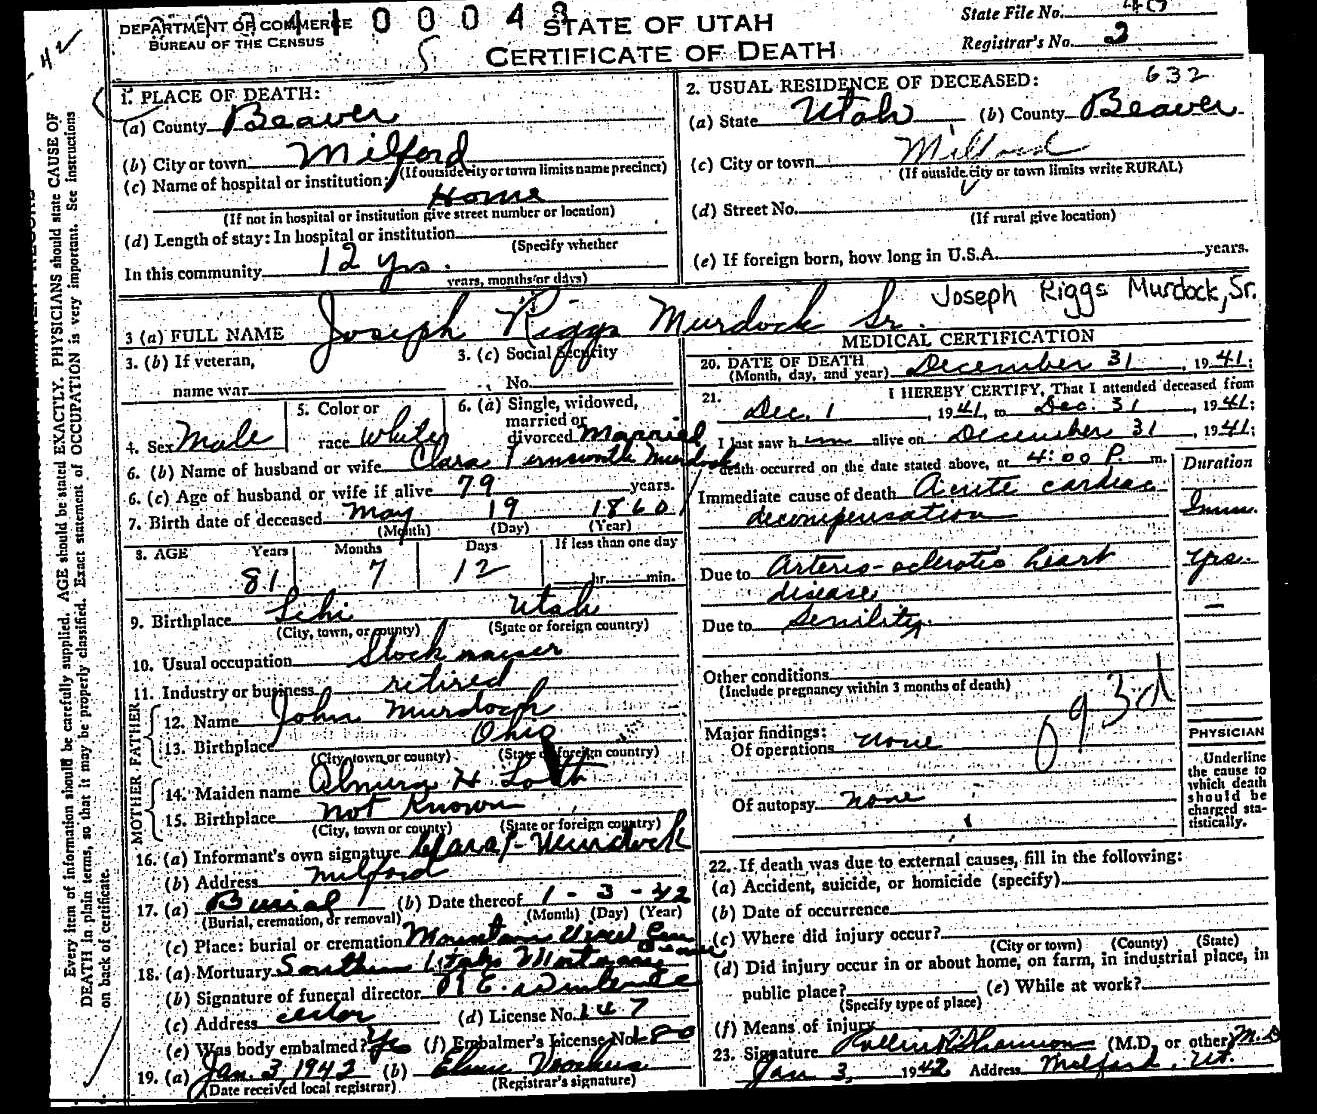 DEPARTMENT OF COMMERCE
BUREAU OF THE CENSUS
0 0 0 4
5
STATE OF UTAH
CERTIFICATE OF DEATH
State File No.
Registrar's No. 2
632
1. PLACE OF DEATH:
(a) County Beaver
(b) City or town Milford
(If outside city or town limits name precinct)
(c) Name of hospital or institution:
Home
(If not in hospital or institution give street number or location)
(d) Length of stay: In hospital or institution
(Specify whether
In this community 12 yrs.
years, months or days)
2. USUAL RESIDENCE OF DECEASED:
(a) State Utah (b) County Beaver
(c) City or town Milford
(If outside city or town limits write RURAL)
(d) Street No.
(If rural give location)
(e) If foreign born, how long in U.S.A. years.
3 (a) FULL NAME Joseph Riggs Murdock Sr.
Joseph Riggs Murdock, Sr.
3. (b) If veteran,
name war
3. (c) Social Security
No.
4. Sex Male
5. Color or
race White
6. (a) Single, widowed,
married or
divorced Married
6. (b) Name of husband or wife Clara Murdock
6. (c) Age of husband or wife if alive 79 years.
7. Birth date of deceased May 19 1860
(Month) (Day) (Year)
8. AGE Years Months Days If less than one day
81 7 12 hr. min.
9. Birthplace Lehi Utah
(City, town, or county) (State or foreign country)
10. Usual occupation Stock raiser
11. Industry or business retired
FATHER
12. Name John Murdock
13. Birthplace Ohio
(City, town or county) (State or foreign country)
MOTHER
14. Maiden name Almira H. Lott
15. Birthplace not Known
(City, town or county) (State or foreign country)
16. (a) Informant's own signature Clara Murdock
(b) Address Milford
17. (a) Burial (b) Date thereof 1 - 3 - 42
(Burial, cremation, or removal) (Month) (Day) (Year)
(c) Place: burial or cremation Mountain View Cem
18. (a) Mortuary Southern Utah Mortuary
(b) Signature of funeral director
(c) Address Cedar (d) License No. 147
(e) Was body embalmed? Yes (f) Embalmer's License No. 180
19. (a) Jan. 3 1942 (b)
(Date received local registrar) (Registrar's signature)
MEDICAL CERTIFICATION
20. DATE OF DEATH
(Month, day, and year) December 31, 1941;
21. I HEREBY CERTIFY, That I attended deceased from
Dec. 1, 1941, to Dec. 31, 1941;
I last saw him alive on December 31, 1941;
death occurred on the date stated above, at 4:00 P. m.
Duration
Immediate cause of death Acute cardiac
decompensation
Due to Arterio-sclerotic heart yrs.
disease
Due to Senility.
Other conditions
(Include pregnancy within 3 months of death)
093d
Major findings:
Of operations none
Of autopsy none
PHYSICIAN
Underline
the cause to
which death
should be
charged sta-
tistically.
22. If death was due to external causes, fill in the following:
(a) Accident, suicide, or homicide (specify)
(b) Date of occurrence
(c) Where did injury occur?
(City or town) (County) (State)
(d) Did injury occur in or about home, on farm, in industrial place, in
public place? (e) While at work?
(Specify type of place)
(f) Means of injury
23. Signature (M.D. or other) M.D
Jan 3, 1942 Address Milford, Ut.
Every item of information should be carefully supplied. AGE should be stated EXACTLY. PHYSICIANS should state CAUSE OF
DEATH in plain terms, so that it may be properly classified. Exact statement of OCCUPATION is very important. See instructions
on back of certificate.